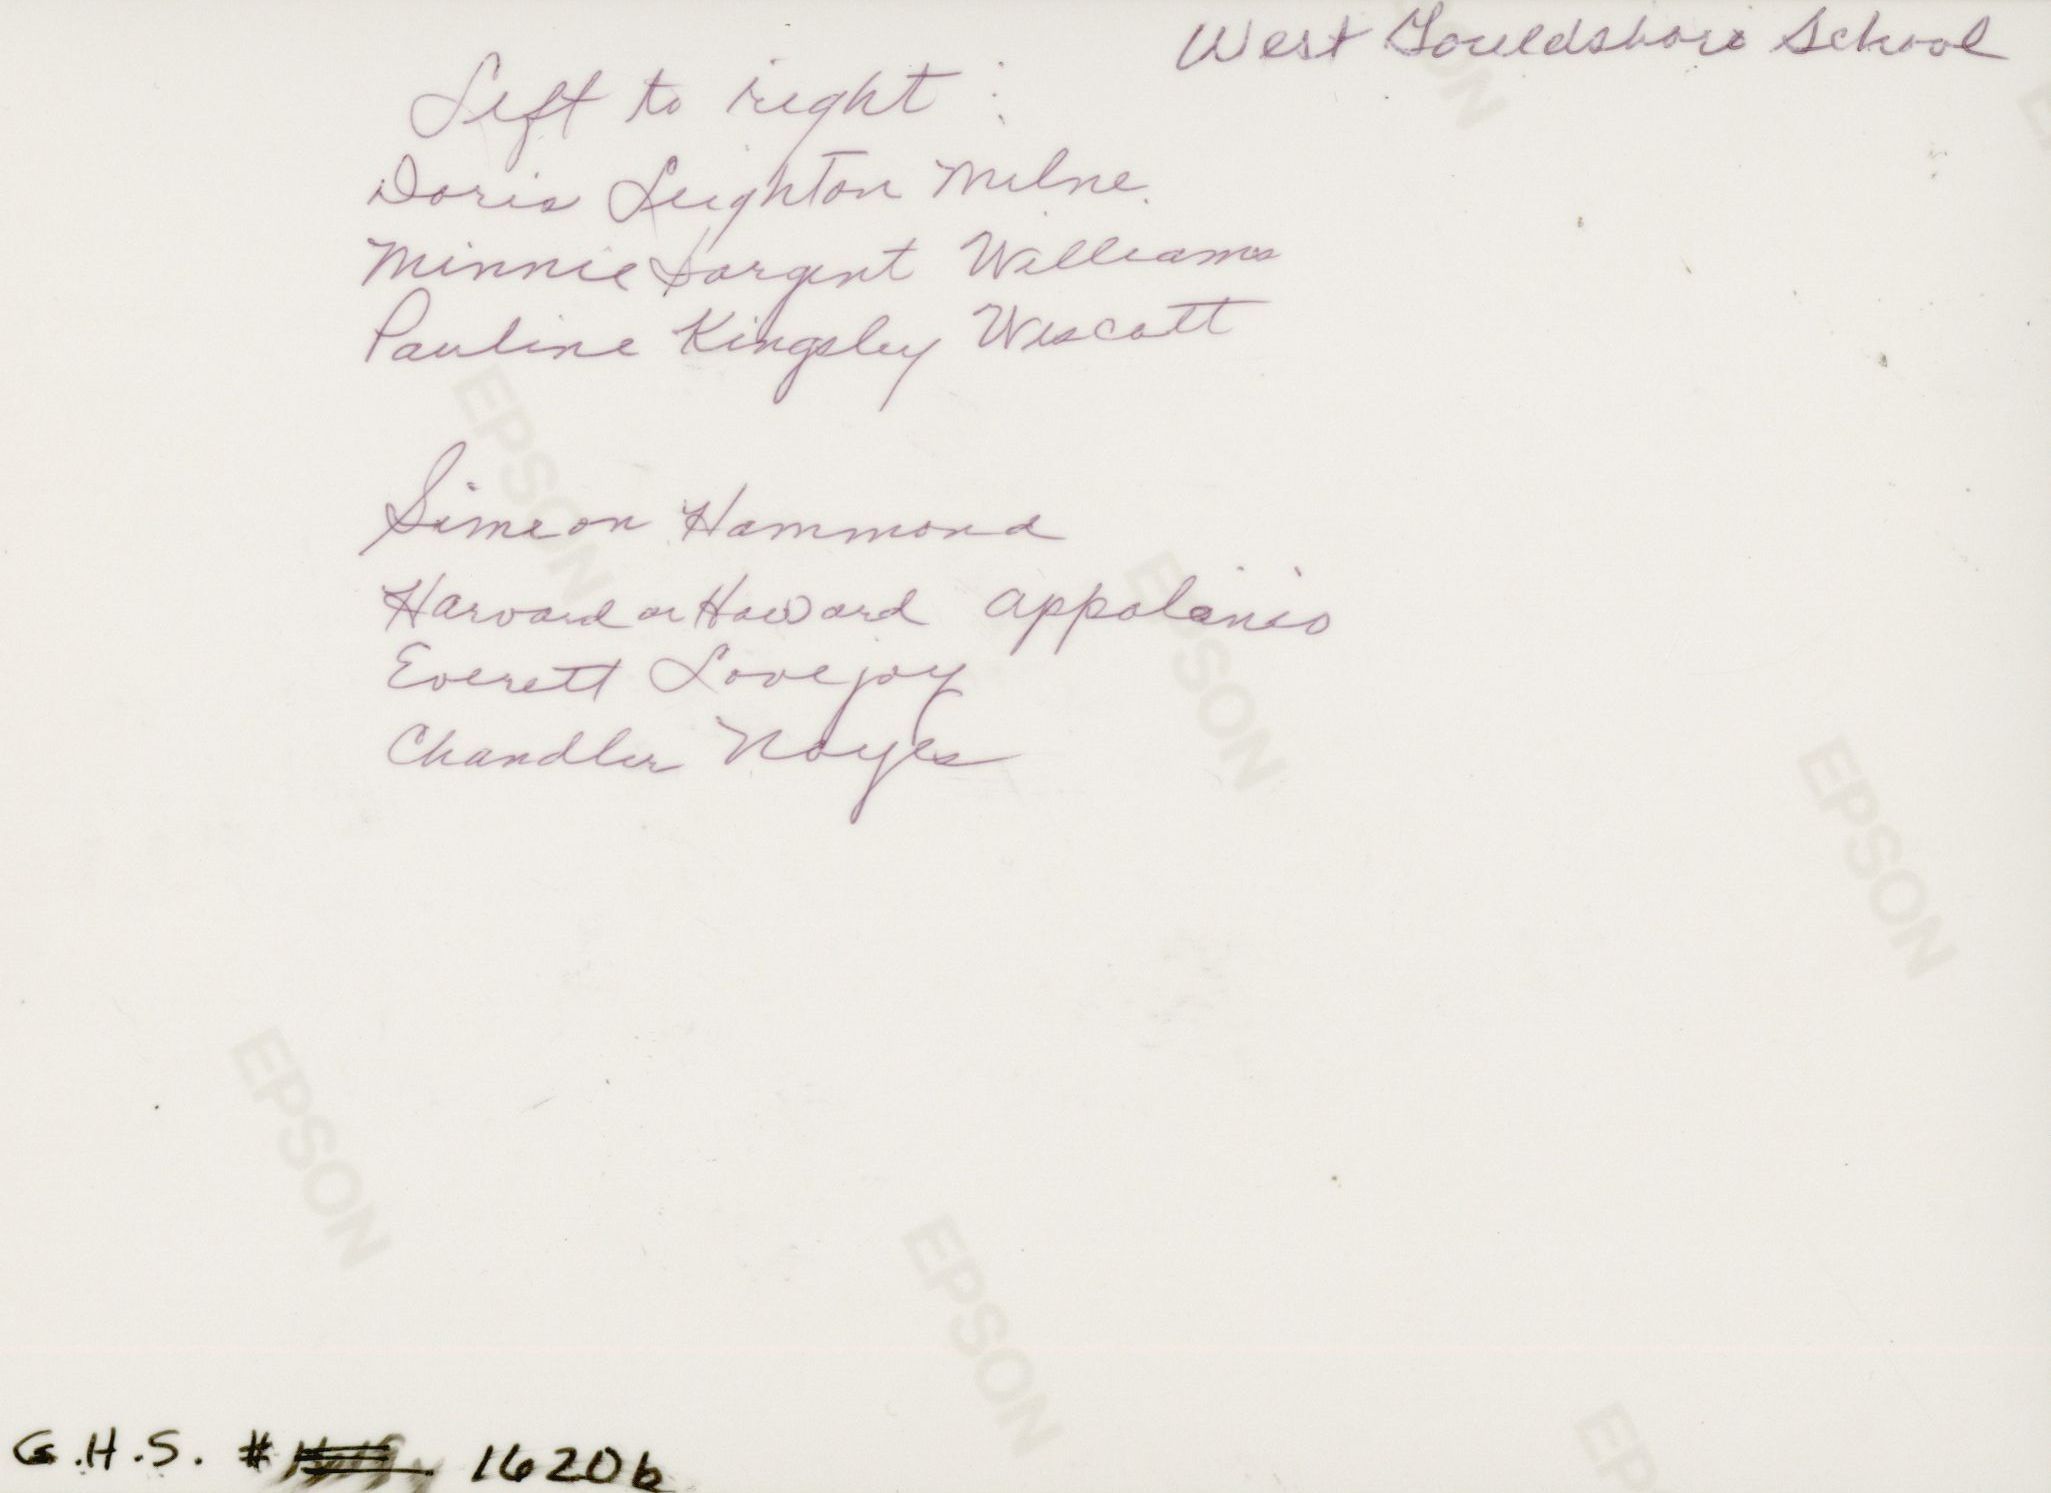 West Gouldsboro School
Left to right :
Doris Leighton Milne.
Minnie Sargent Williams
Pauline Kingsley Wescott
Simeon Hammond
Harvard or Howard Appolonio
Everett Lovejoy
Chandler Noyes
EPSON
EPSON
EPSON
EPSON
EPSON
G.H.S. # 1620b